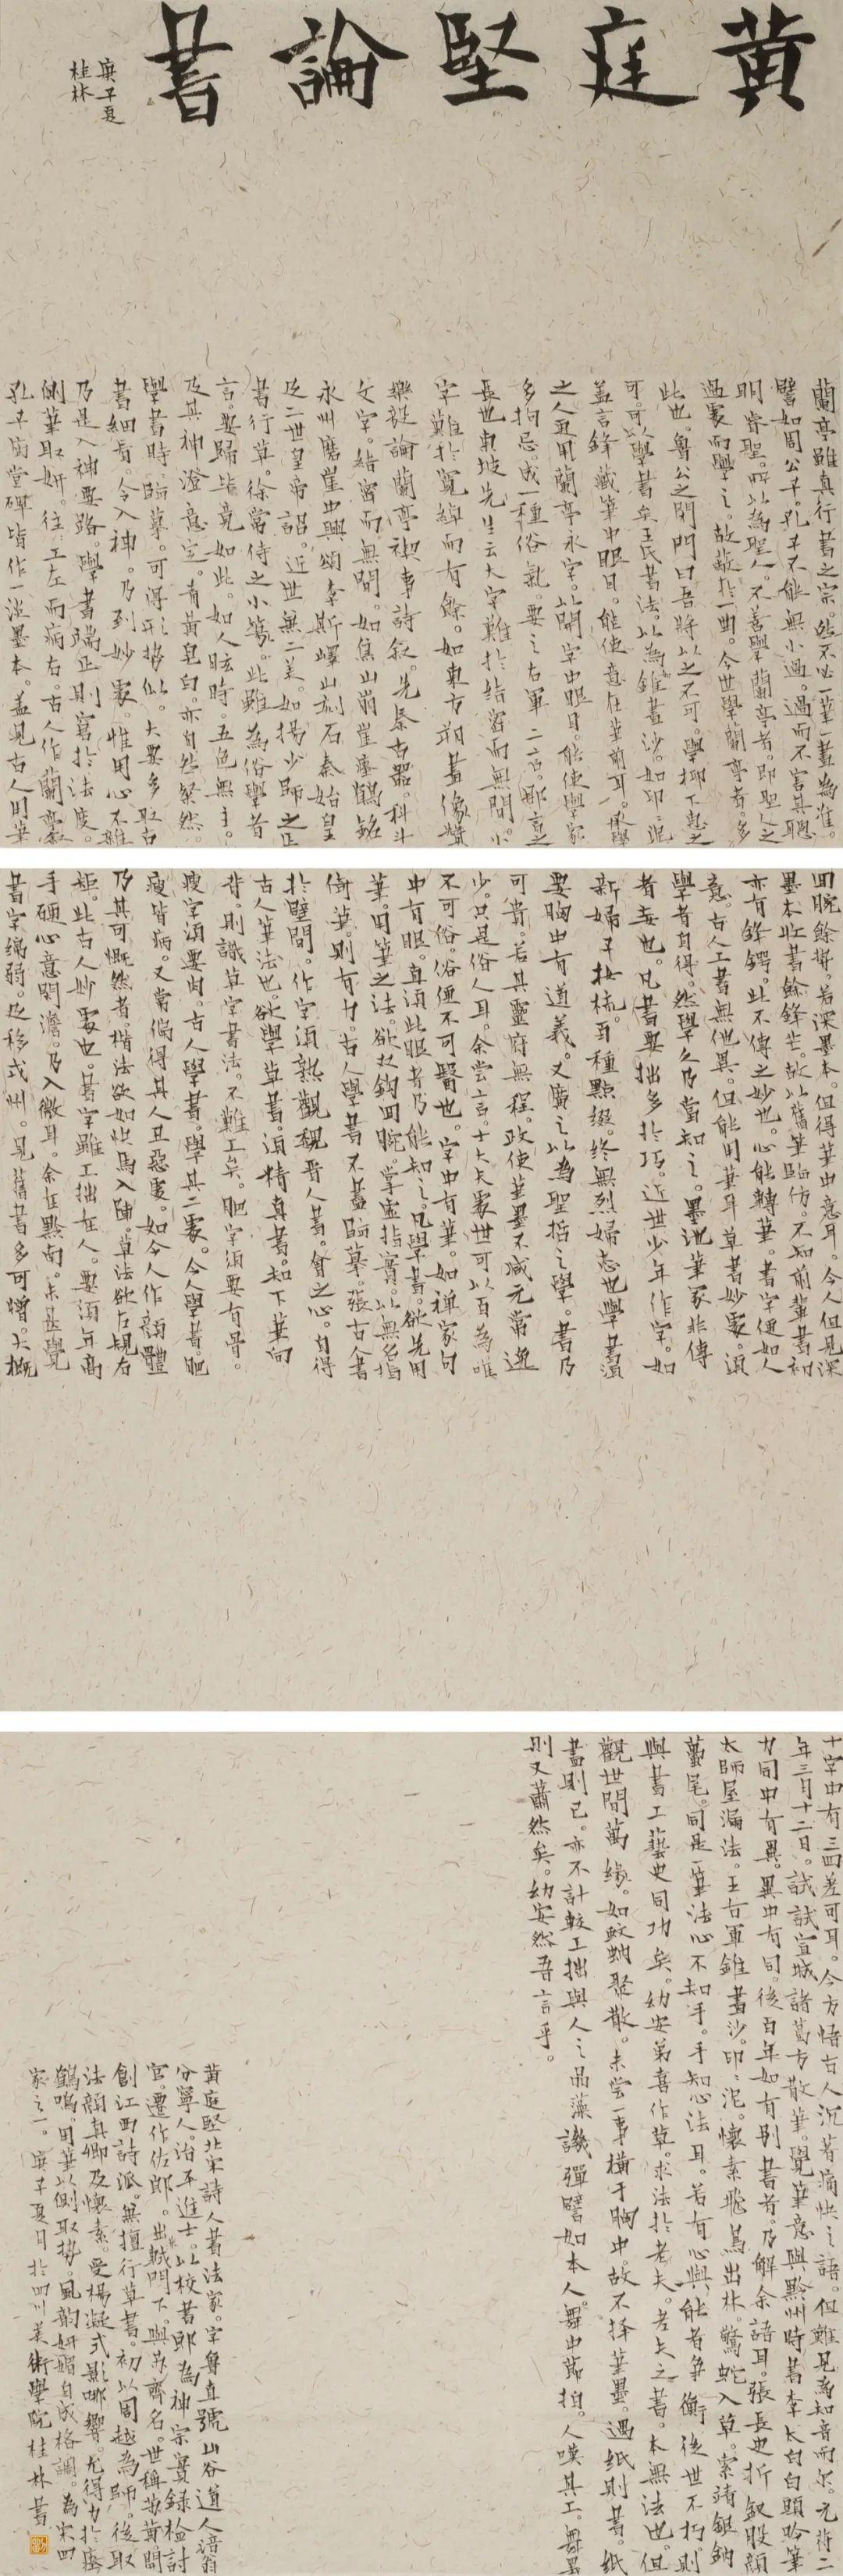 黃庭堅論書
庚子夏
桂林
蘭亭雖真行書之宗然不必一筆一畫為准。
譬如周公子。孔子不能無小過。過而不害其聰
明睿聖。所以為聖人。不善學蘭亭者。即聖人之
過處而學之。故蔽於一曲。今世學蘭亭者。多
此也。魯公之閉門曰吾將以之不可。學柳下惠之
可。可以學書矣王氏書法。以為錐畫沙。如印〻泥
蓋言鋒藏筆中眼目。能使意在筆前耳。承學
之人更用蘭亭永字。以開字中眼目。能使學家
多拘忌。成一種俗氣。要之右軍二言。鄙言之
長也東坡先生云大字難於結密而無間。小
字難於寬綽而有餘。如東方朔畫像贊
樂毅論蘭亭禊事詩叙。先秦古器。科斗
文字。結密而無間。如焦山崩崖瘞鶴銘
永州磨崖中興頌李斯嶧山刻石秦始皇
及二世皇帝詔。近世無二美。如楊少師之正
書行草。徐常侍之小篆。此雖為俗學者
言。要歸皆竟如此。如人眩時。五色無主。
及其神澄意定。青黃皂白。亦自然粲然。
學書時。臨摹。可得形勢似。大要多取古
書細看。令入神。乃到妙處。惟用心不雜
乃是入神要路。學書端正則窘於法度。
側筆取妍。往〻工左而病右。古人作蘭敘
孔子廟堂碑皆作一淡墨本。蓋見古人用筆
回腕餘勢。若深墨本。但得筆中意耳。今人但見深
墨本收書餘鋒芒。故以舊筆臨仿。不知前輩書初
亦有鋒鍔。此不傳之妙也。心能轉筆。書字便如人
意。古人工書無他異。但能用筆耳草書妙處。須
學者自得。然學久乃當知之。墨池筆冢非傳
者妄也。凡書要拙多於巧。近世少年作字。如
新婦子妝梳。百種點綴。終無烈婦態也學書須
要胸中有道義。又廣之以為聖哲之學。書乃
可貴。若其靈府無程。政使筆墨不減元常逸
少。只是俗人耳。余嘗言。士大夫處世可以百為唯
不可俗。俗便不可醫也。字中有筆。如禪家句
中有眼。直須此眼者乃能知之。凡學書。欲先用
筆。用筆之法。欲双鈎回腕。掌虛指實。以無名指
倚筆。則有力。古人學書不盡臨摹。張古人書
於壁間。作字須熟觀魏晉人書。會之心。自得
古人筆法也。欲學草書。須精真書。知下筆向
背。則識草字書法。不難工矣。肥字須要有骨。
瘦字須要肉。古人學書。學其二處。今人學書。肥
瘦皆病。又常偏得其人丑惡處。如今人作顏體
乃其可慨然者。楷法欲如快馬入陣。草法欲左規右
矩。此古人妙處也。書字雖工拙在人。要須年高
手硬心意閑澹。乃入微耳。余在黔南。未甚覺
書字綿弱。及移戎州。見舊書多可憎。大概
十字中有三四差可耳。今方悟古人沉著痛快之語。但難見為知音而尔。元符二
年三月十二日。試試宣城諸葛方散筆。覺筆意與黔州時書李太白白頭吟筆
力同中有異。異中有同。後百年如有別書者。乃解余語耳。張長史折釵股顏
太師屋漏法。王右軍錐畫沙。印〻泥。懷素飛鳥出林。驚蛇入草。索靖銀鈎
蠆尾。同是一筆法心不知手。手不知心法耳。若有心與能者爭衡後世不朽。則
與書工藝史同功矣。幼安弟喜作草。求法於老夫。老夫之書。本無法也。但
觀世間萬緣。如蚊蚋聚散。未嘗一事橫于胸中。故不择筆墨。遇紙則書。紙
盡則已。亦不計較工拙與人之品藻譏彈譬如本人。舞中節拍。人嘆其工。舞罷
則又蕭然矣。幼安然吾言乎。
黃庭堅北宋詩人書法家。字魯直號山谷道人涪翁
分寧人。治平進士。以校書郎為神宗實錄檢討
官。遷作佐郎。出軾門下。與苏齊名。世稱苏黃。開
創江西詩派。無擅行草書。初以周越為師。後取
法顏真卿及懷素。受楊凝式影響。尤得力於瘞
鶴鳴。用筆以側取勢。風韵妍媚自成格調。為宋四
家之一。庚子夏日於四川美術學院桂林書